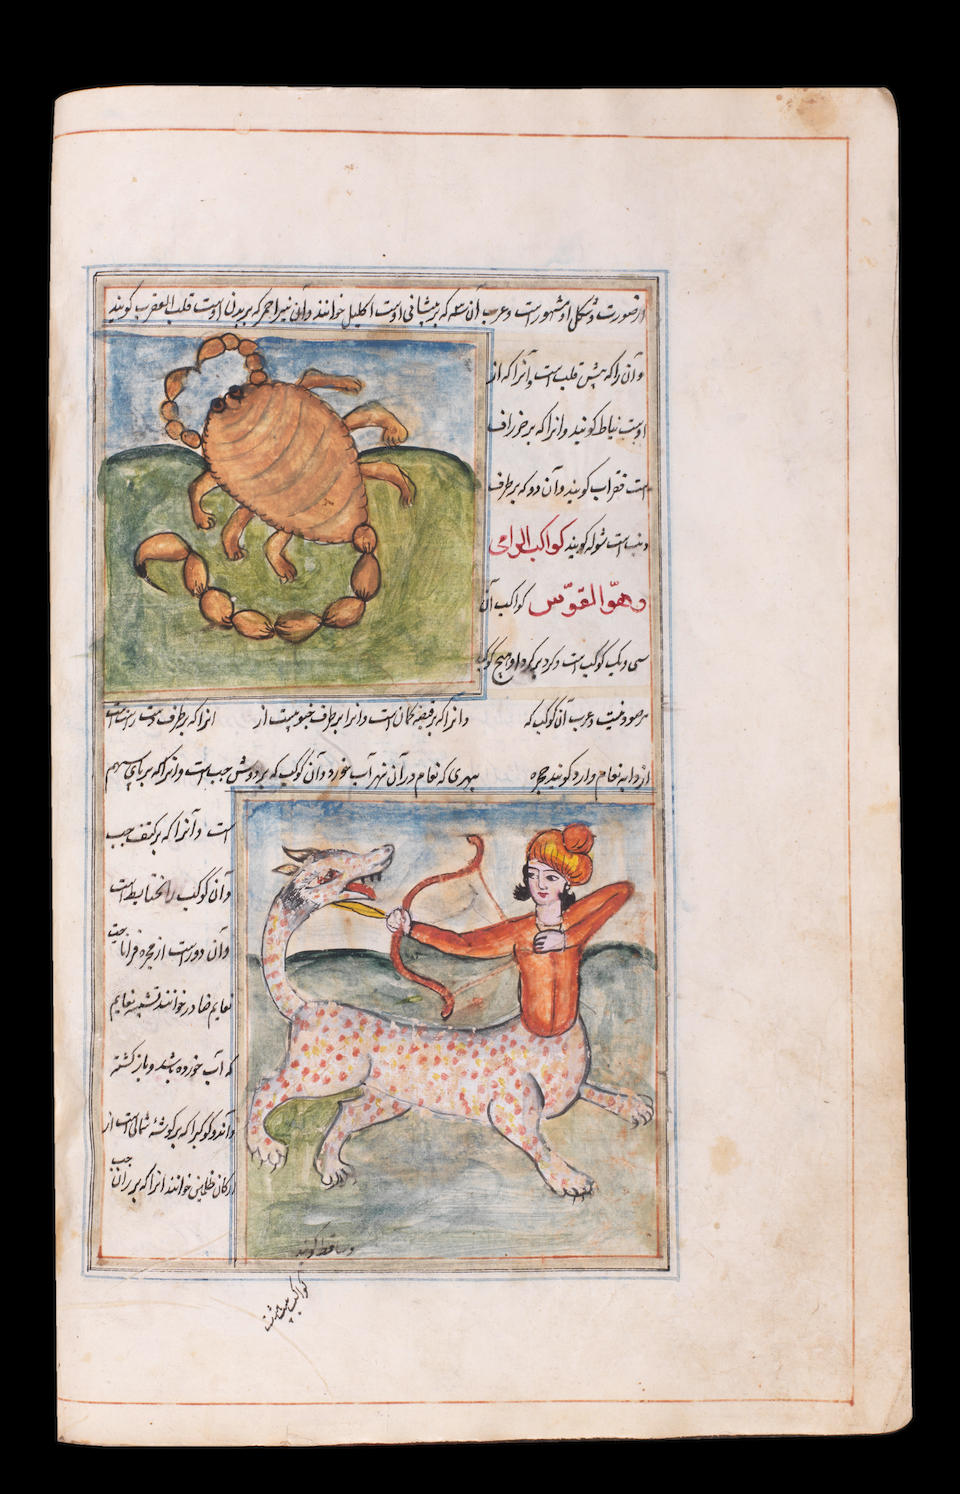 از صورت و شکل او مشهور است و عرب آن سه که بر پیشانی اوست اکلیل خوانند و آن نیر احمر که بر بدن اوست قلب العقرب گویند
و آن را که پیش قلب است و آنرا که از
اوست نیاط گویند و آنرا که بر خرزات
است فقرات گویند و آن دو که بر طرف
ذنب است شوله گویند کواکب الرامی
وهو القوس کواکب آن
سی و یک کوکب است و گرد بر گرد او هیچ کوکب
مرصود نیست و عرب آن کوکب که و آنرا که بر قبضه کمان است و آنرا بر طرف جنوبیست از آنرا که بر طرف دست راست است
از دابه نعام وارد گویند مجره بنهری که نعام در آن نهر آب خورد و آن کوکب که بر دوش چپ است و آنرا که بر پای سهم
است و آنرا که بر کتف چپ
و آن کوکب را تحتابط است
و آن دور است از مجره فراناحیت
نعایم صادر خوانند تشبیه نعایم
که آب خورده باشد و باز گشته
و آن دو کوکب را که بر گوشه شمالی است از
ارکان ظلیمین خوانند آنرا که بر ران چپ
کواکب بیست